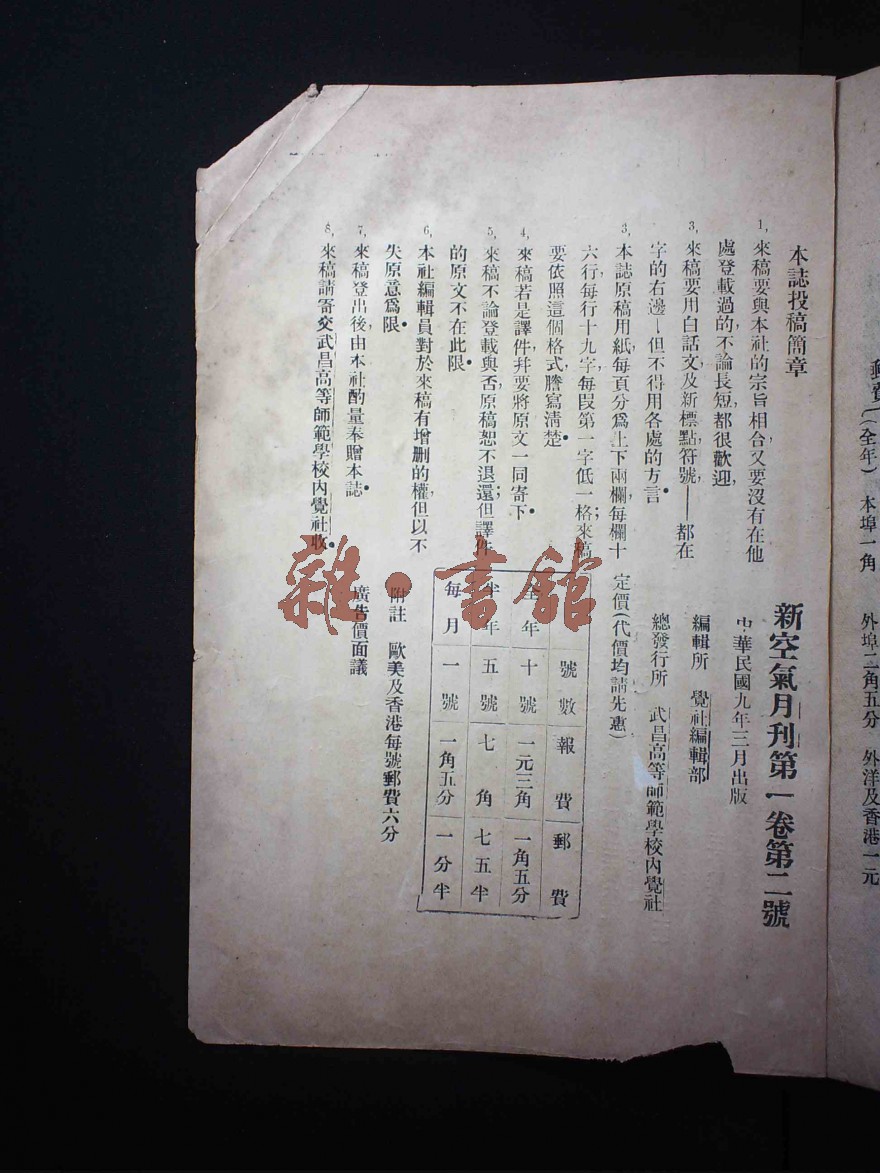 郵費{(全年) 本埠一角 外埠二角五分 外洋及香港一元
本誌投稿簡章
1,來稿要與本社的宗旨相合,又要沒有在他
處登載過的,不論長短,都很歡迎,
3,來稿要用白話文,及新標點符號——都在
字的右邊—但不得用各處的方言.
3,本誌原稿用紙,每頁分爲上下兩欄,每欄十
六行,每行十九字,每段第一字低一格;來稿
要依照這個格式,謄寫清楚.
4,來稿若是譯件,幷要將原文一同寄下.
5,來稿不論登載與否,原稿恕不退還;但譯件
的原文不在此限.
6,本社編輯員對於來稿有增刪的權,但以不
失原意爲限.
7,來稿登出後,由本社酌量奉贈本誌.
8,來稿請寄交武昌高等師範學校內覺社收.
新空氣月刊第一卷第二號
中華民國九年三月出版
編輯所 覺社編輯部
總發行所 武昌高等師範學校內覺社
定價(代價均請先惠)
號數 報費 郵費
全年 十號 一元三角 一角五分
半年 五號 七角 七五半
每月 一號 一角五分 一分半
附註 歐美及香港每號郵費六分
廣告價面議
雜·書館